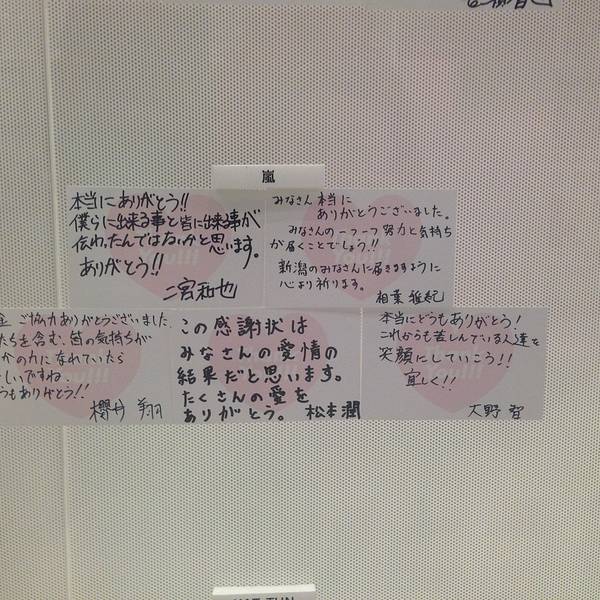 嵐
本当にありがとう!!
僕らに出来る事と皆に出来る事が
伝わったんではないかと思います。
ありがとう!!
二宮和也
みなさん本当に
ありがとうございました。
みなさんの一つ一つ努力と気持ち
が届くことでしょう!!
新潟のみなさんに届きますように
心より祈ります。
相葉雅紀
金 ご協力ありがとうございました
たちを含む、皆の気持ちが
かの力になれていたら
しいですね。
うもありがとう!!
櫻井翔
この感謝状は
みなさんの愛情の
結果だと思います。
たくさんの愛を
ありがとう。 松本潤
本当にどうもありがとう!
これからも苦しんでいる人達を
笑顔にしていこう!!
宜しく!!
大野智